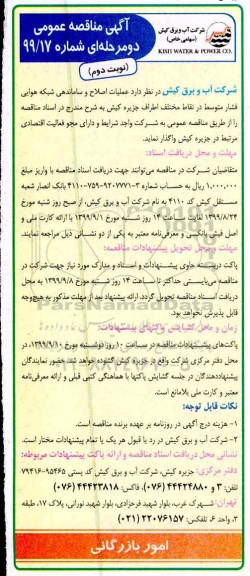 شرکت آب و برق کیش
(سهامی خاص)
KISH WATER & POWER CO.
آگهی مناقصه عمومی
دو مرحله‌ای شماره ۹۹/۱۷
(نوبت دوم)
شرکت آب و برق کیش در نظر دارد عملیات اصلاح و ساماندهی شبکه هوایی
فشار متوسط در نقاط مختلف اطراف جزیره کیش به شرح مندرج در اسناد مناقصه
را از طریق مناقصه عمومی به شرکت واجد شرایط و دارای مجوز فعالیت اقتصادی
مرتبط در جزیره کیش واگذار نماید.
مهلت و محل دریافت اسناد:
متقاضیان شرکت در مناقصه می‌توانند جهت دریافت اسناد مناقصه با واریز مبلغ
۱,۰۰۰,۰۰۰ ریال به حساب شماره ۳-۹۲۰۷۷۷۱-۷۵۹-۴۱۱۰ بانک انصار شعبه
مستقل کیش کد ۴۱۱۰ به نام شرکت آب و برق کیش، از صبح روز شنبه مورخ
۱۳۹۹/۸/۲۴ لغایت ساعت ۱۴ روز شنبه مورخ ۱۳۹۹/۹/۱ با ارائه کارت ملی و
اصل فیش بانکی و معرفی‌نامه معتبر به یکی از دو نشانی ذیل مراجعه نمایند.
مهلت و محل تحویل پیشنهادات مناقصه:
پاکت دربسته حاوی پیشنهادات و اسناد و مدارک مورد نیاز جهت شرکت در
مناقصه می‌بایستی حداکثر تا ساعت ۱۴ روز شنبه مورخ ۱۳۹۹/۹/۸ به محل
دریافت اسناد مناقصه تحویل گردد. ارائه پیشنهاد بعد از مهلت مذکور به هیچ‌وجه
قابل پذیرش نخواهد بود.
زمان و محل گشایش پاکتهای پیشنهادات:
پاکت‌های پیشنهادات مناقصه در ساعت ۱۰ روز دوشنبه مورخ ۱۳۹۹/۹/۱۰، در
محل دفتر مرکزی شرکت واقع در جزیره کیش گشوده خواهد شد. حضور نمایندگان
پیشنهاددهندگان در جلسه گشایش پاکتها با هماهنگی کتبی قبلی و ارائه معرفی‌نامه
معتبر و کارت ملی بلامانع است.
نکات قابل توجه:
۱- هزینه درج آگهی در روزنامه بر عهده برنده مناقصه است.
۲- شرکت آب و برق کیش در رد یا قبول هر یک یا تمام پیشنهادات مختار است.
نشانی محل دریافت اسناد مناقصه و ارائه پاکت پیشنهادات مربوطه:
دفتر مرکزی: جزیره کیش، شرکت آب و برق کیش کد پستی ۹۵۴۶۵-۷۹۴۱۶
تلفن: ۳ و ۴۴۴۲۴۸۸۰ (۰۷۶)، فاکس: ۴۴۴۲۳۸۱۸ (۰۷۶)
تهران: شهرک غرب، بلوار شهید فرحزادی، بلوار شهید نورانی، پلاک ۱۷، طبقه
۳، واحد ۶، تلفکس: ۲۲۰۷۶۱۵۷ (۰۲۱)
امور بازرگانی